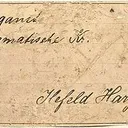 ganist
matische Kr.
Ilefeld Har